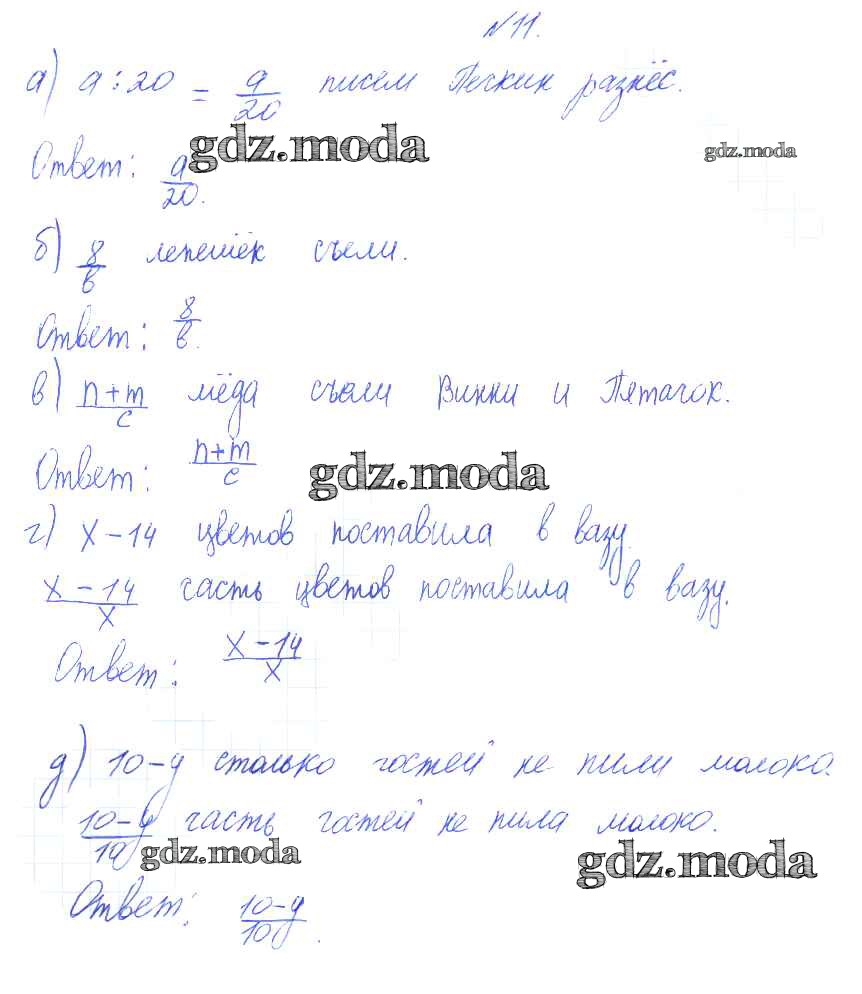 №11.
а) а:20 = а/20 писем Печкин разнёс.
gdz.moda
gdz.moda
Ответ: а/20.
б) 8/в лепешек съели.
Ответ: 8/в.
в) n+m/c мёда съели Винни и Пятачок.
Ответ: n+m/c
gdz.moda
г) x-14 цветов поставила в вазу.
x-14/x часть цветов поставила в вазу.
Ответ: x-14/x
д) 10-y столько гостей не пили молоко.
10-y/10 часть гостей не пила молоко.
gdz.moda
gdz.moda
Ответ: 10-y/10.